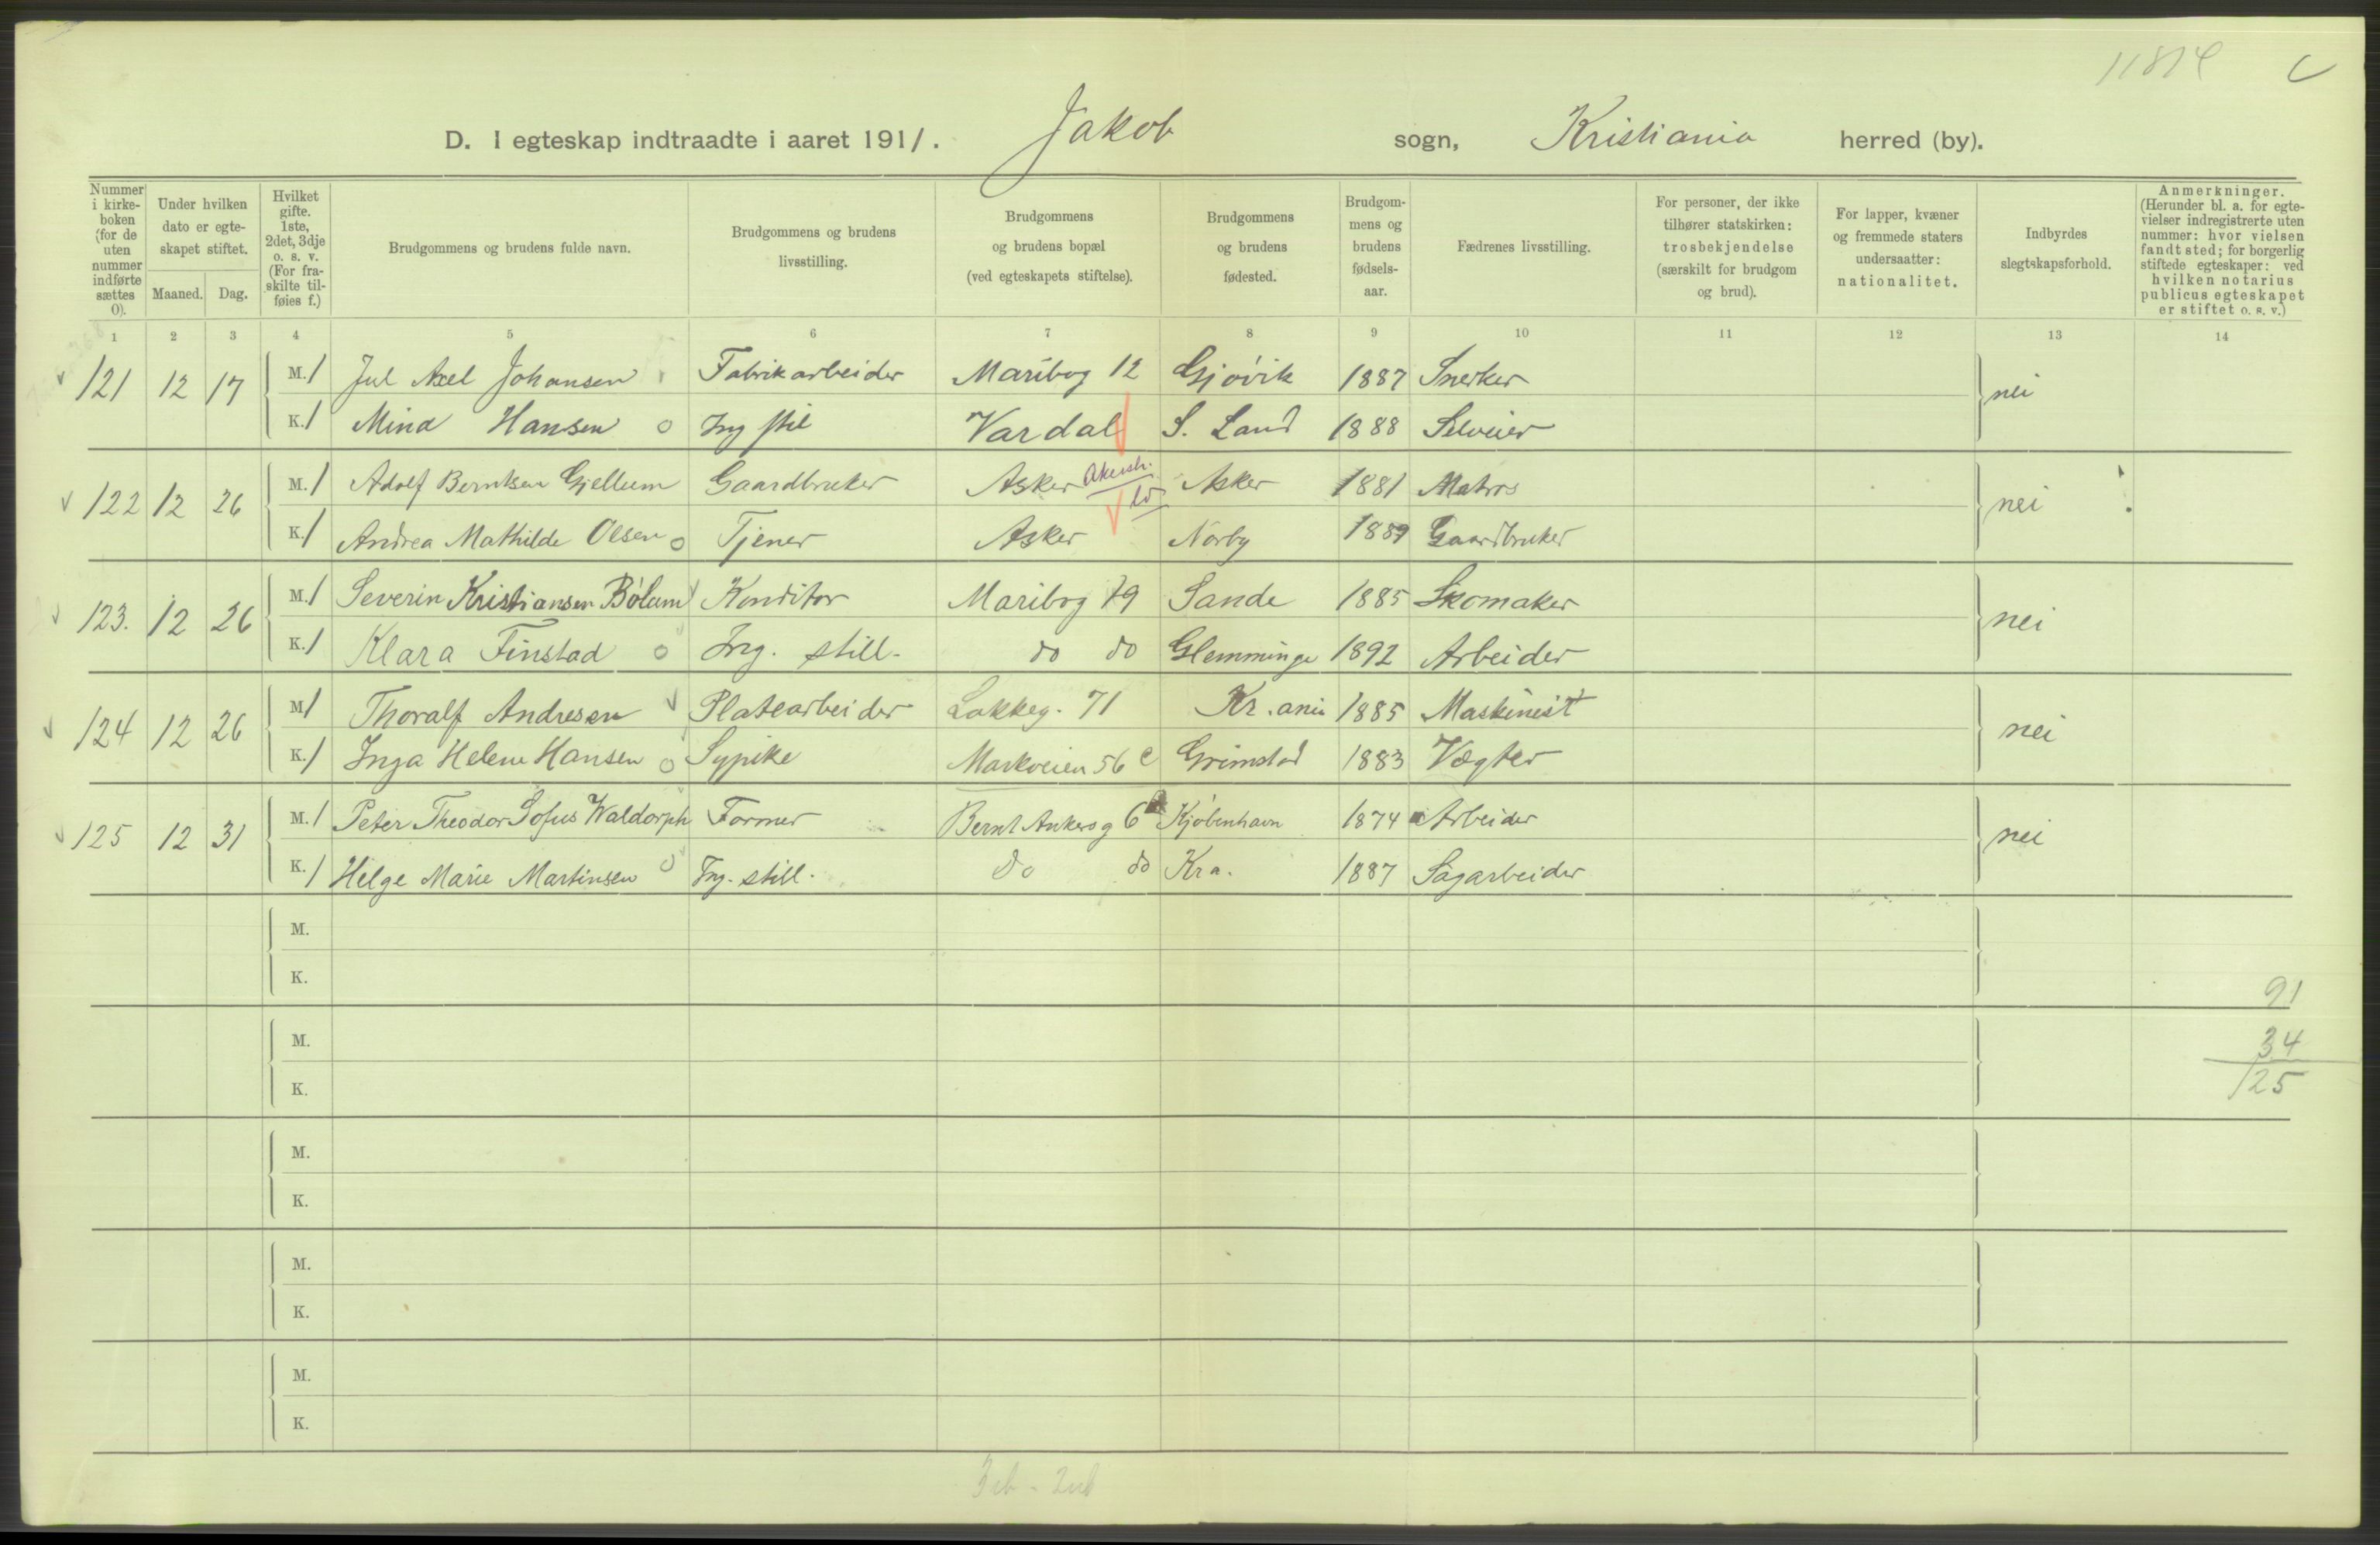 11814
D. I egteskap indtraadte i aaret 1911. Jakob sogn, Kristiania herred (by).
Nummer i kirkeboken (for de uten nummer indførte sættes 0).
Under hvilken dato er egteskapet stiftet.
Maaned. Dag.
Hvilket gifte. 1ste, 2det, 3dje o. s. v. (For fraskilte tilføies f.)
Brudgommens og brudens fulde navn.
Brudgommens og brudens livsstilling.
Brudgommens og brudens bopæl (ved egteskapets stiftelse).
Brudgommens og brudens fødested.
Brudgommens og brudens fødselsaar.
Fædrenes livsstilling.
For personer, der ikke tilhører statskirken: trosbekjendelse (særskilt for brudgom og brud).
For lapper, kvæner og fremmede staters undersaatter: nationalitet.
Indbyrdes slegtskapsforhold.
Anmerkninger. (Herunder bl. a. for egtevielser indregistrerte uten nummer: hvor vielsen fandt sted; for borgerlig stiftede egteskaper: ved hvilken notarius publicus egteskapet er stiftet o. s. v.)
1 2 3 4 5 6 7 8 9 10 11 12 13 14
121 12 17 M. 1 Jul Axel Johansen Fabrikarbeider Maribog 12 Gjøvik 1887 Snerker nei
K. 1 Mina Hansen Ing stil Vardal S. Land 1888 Selveier
122 12 26 M. 1 Adolf Berntsen Gjellum Gaardbruker Asker Akersh. Asker 1881 Matros nei
K. 1 Andrea Mathilde Olsen Tjener Asker Norby 1889 Gaardbruker
123. 12 26 M. 1 Severin Kristiansen Bølum Konditor Maribog 19 Sande 1885 Skomaker nei
K. 1 Klara Finstad Ing. still. do do Glemminge 1892 Arbeider
124 12 26 M 1 Thoralf Andresen Platearbeider Lakkeg. 71 Kr.ania 1885 Maskinist nei
K. 1 Inga Helene Hansen Sypike Markveien 56 c Grimstad 1883 Vægter
125 12 31 M. 1 Peter Theodor Sofus Waldorph Former Bernt Ankersg 6 Kjøbenhavn 1874 Arbeider nei
K. 1 Helge Marie Martinsen Ing. still. Do do Kra. 1887 Sagarbeider
M.
K.
91
M.
34
K.
125
M.
K.
M.
K.
M.
K.